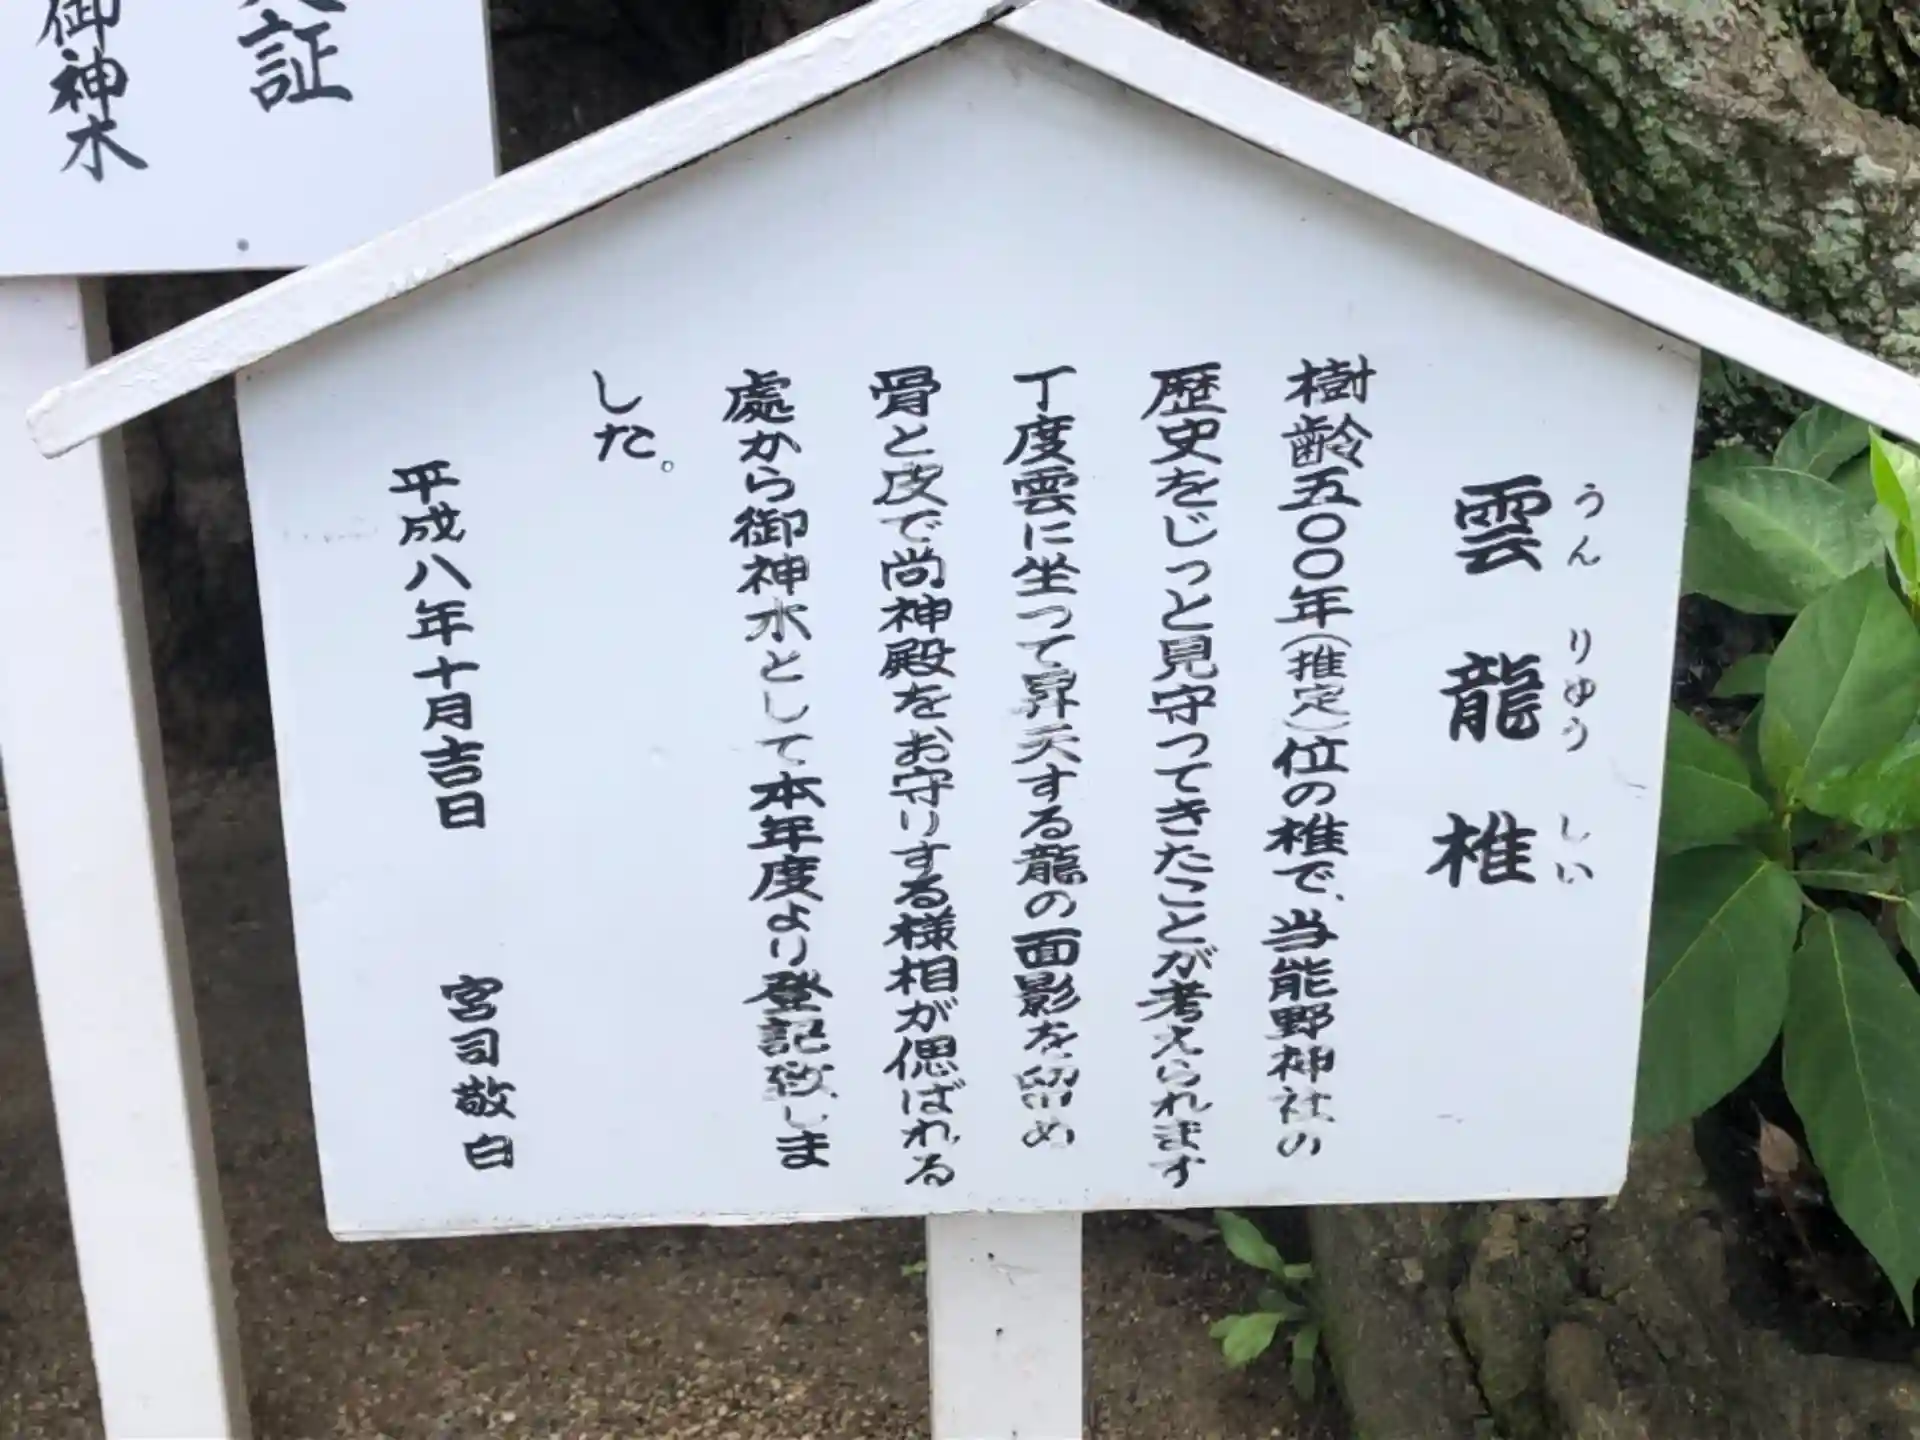 証
御神木
雲龍椎
うんりゆうしい
樹齢五〇〇年(推定)位の椎で、当熊野神社の
歴史をじっと見守ってきたことが考えられます
丁度雲に坐って昇天する龍の面影を留め
骨と皮で尚神殿をお守りする様相が偲ばれる
處から御神木として本年度より登記致しま
した。
平成八年十月吉日
宮司敬白